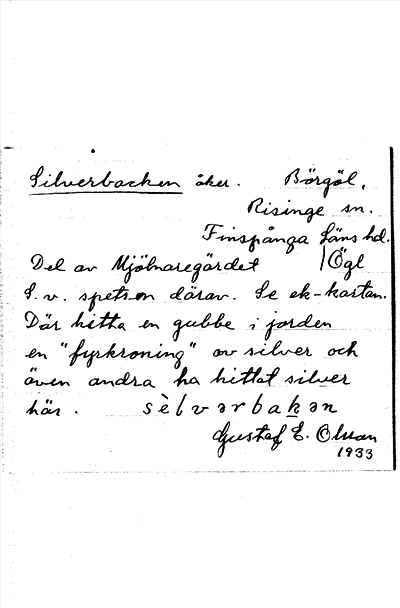 Silverbacken åker. Börgöl,
Risinge sn.
Finspånga Läns hd.
Del av Mjölnaregärdet / Ögl
S.v. spetsen därav. Se ek-kartan.
Där hitta en gubbe i jorden
en "fyrkroning" av silver och
även andra ha hittat silver
här. sèlvərbakən
Gustaf E. Olsson
1933